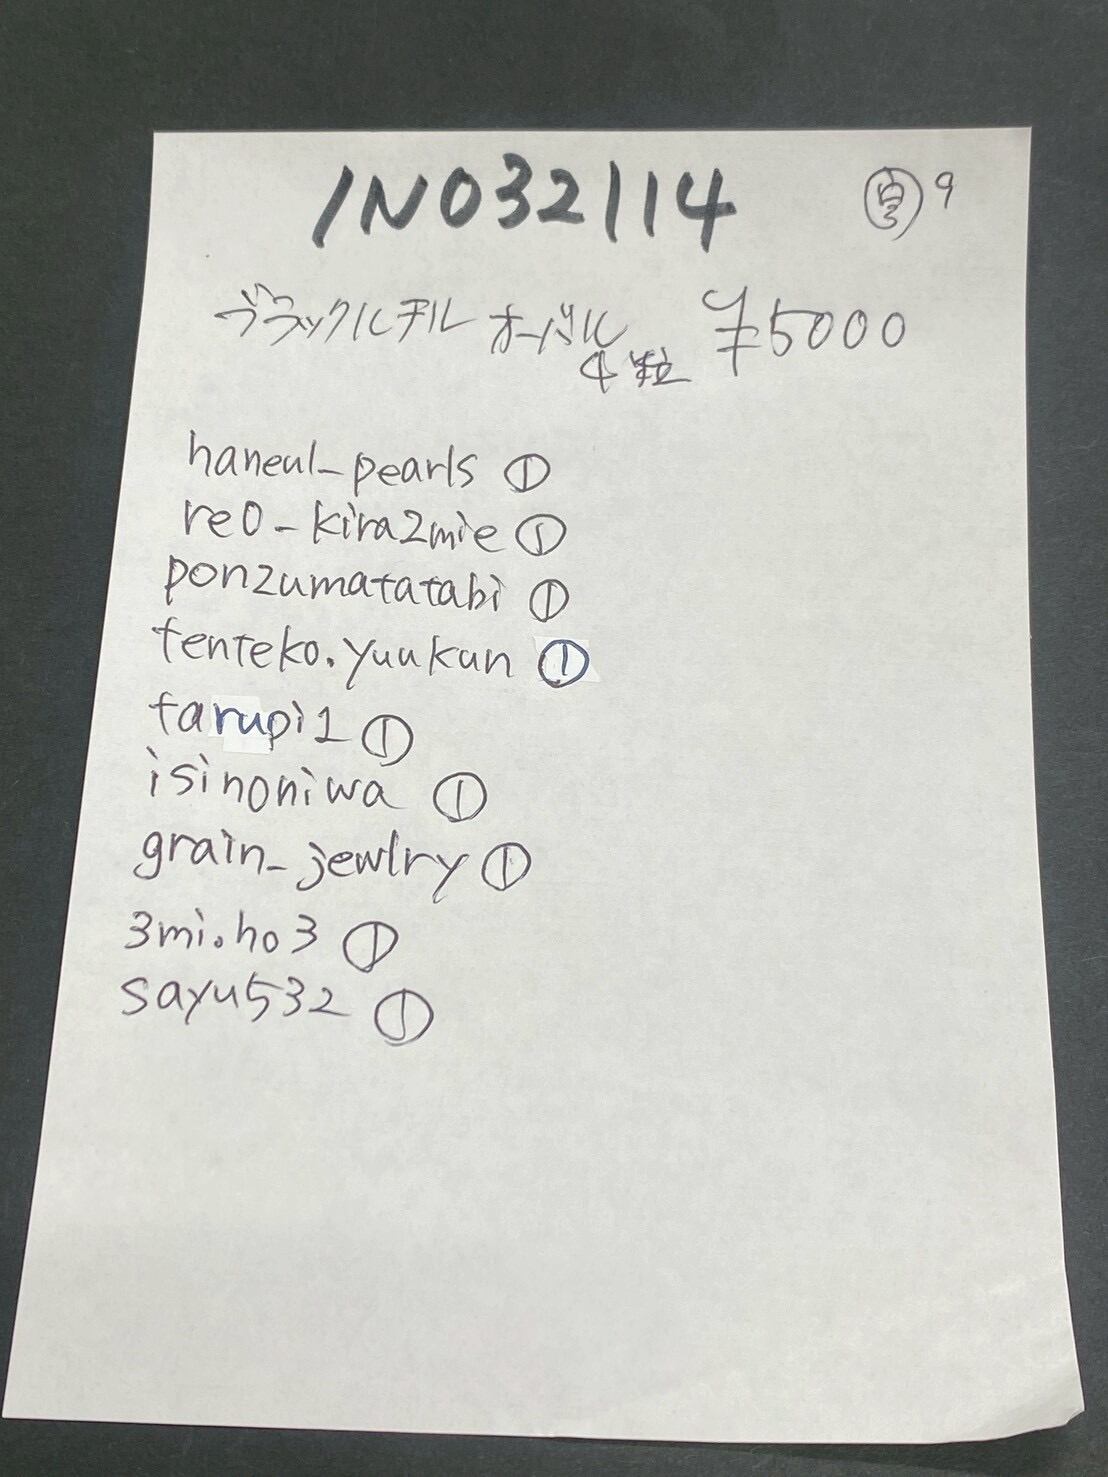 INO32114
9
ブラックルチル オーバル ¥5000
4粒
haneul_pearls ①
re0_kira2mie ①
ponzumatatabi ①
tenteko.yuukun ①
tarupi1 ①
isinoniwa ①
grain_jewlry ①
3mi.ho3 ①
sayu532 ①